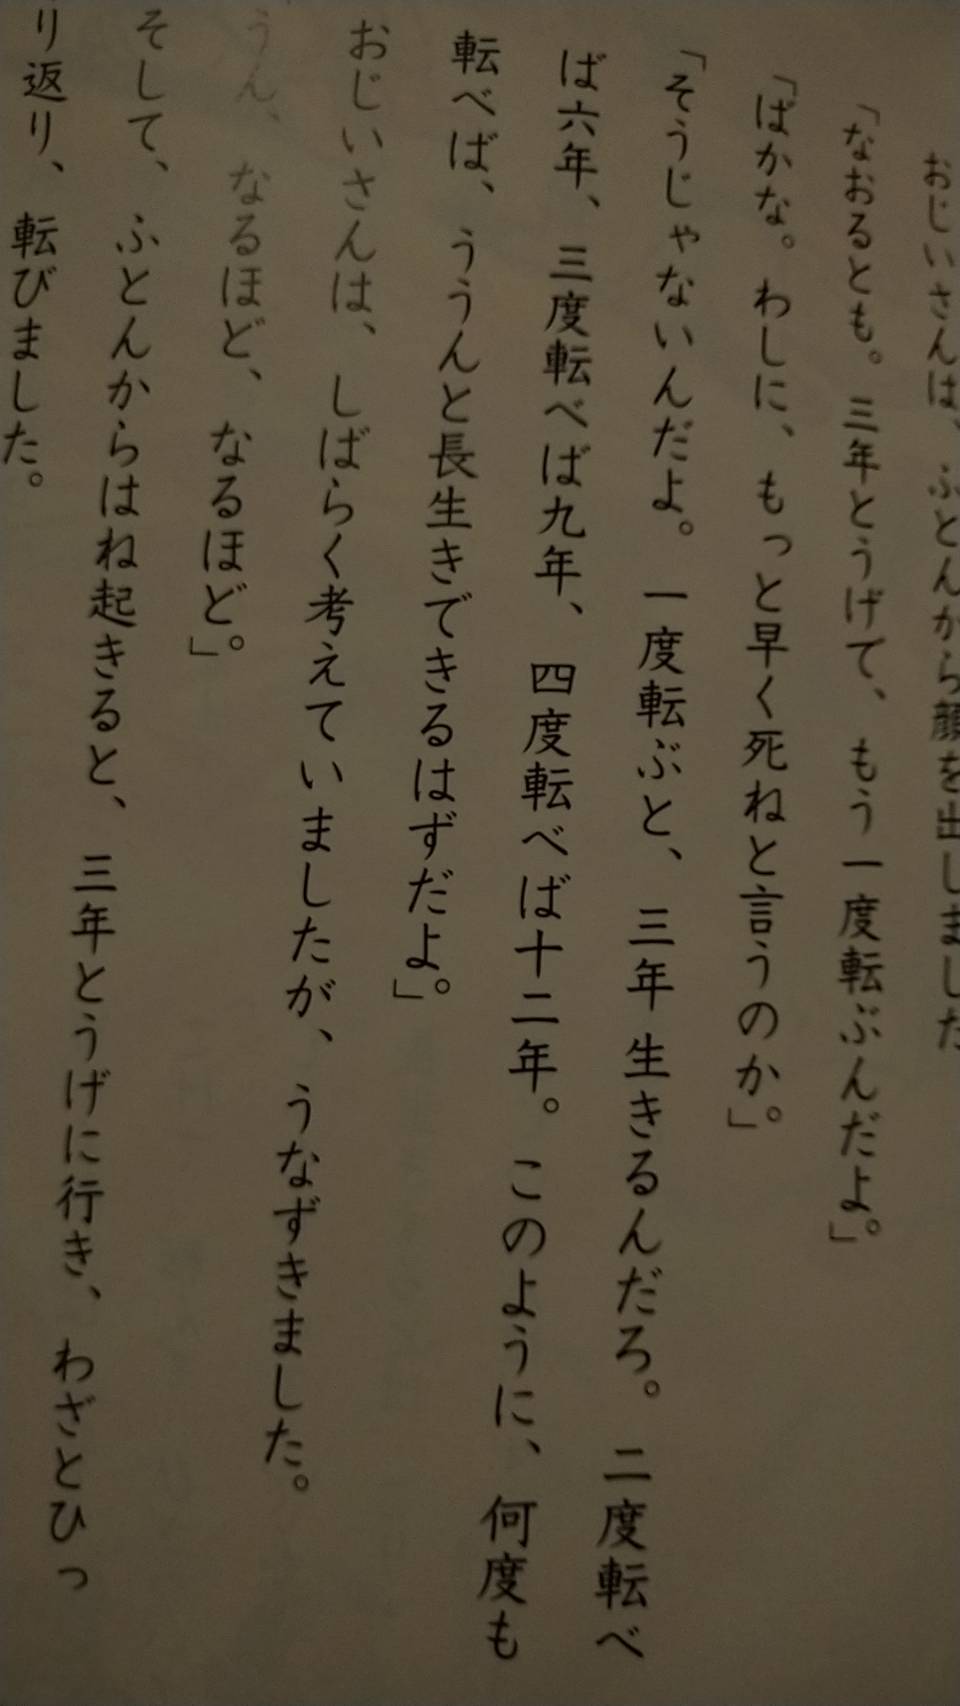 おじいさんは、ふとんから顔を出しました
「なおるとも。三年とうげて、もう一度転ぶんだよ。」
「ばかな。わしに、もっと早く死ねと言うのか。」
「そうじゃないんだよ。一度転ぶと、三年生きるんだろ。二度転べ
ば六年、三度転べば九年、四度転べば十二年。このように、何度も
転べば、ううんと長生きできるはずだよ。」
おじいさんは、しばらく考えていましたが、うなずきました。
うん、なるほど、なるほど。」
そして、ふとんからはね起きると、三年とうげに行き、わざとひっ
り返り、転びました。